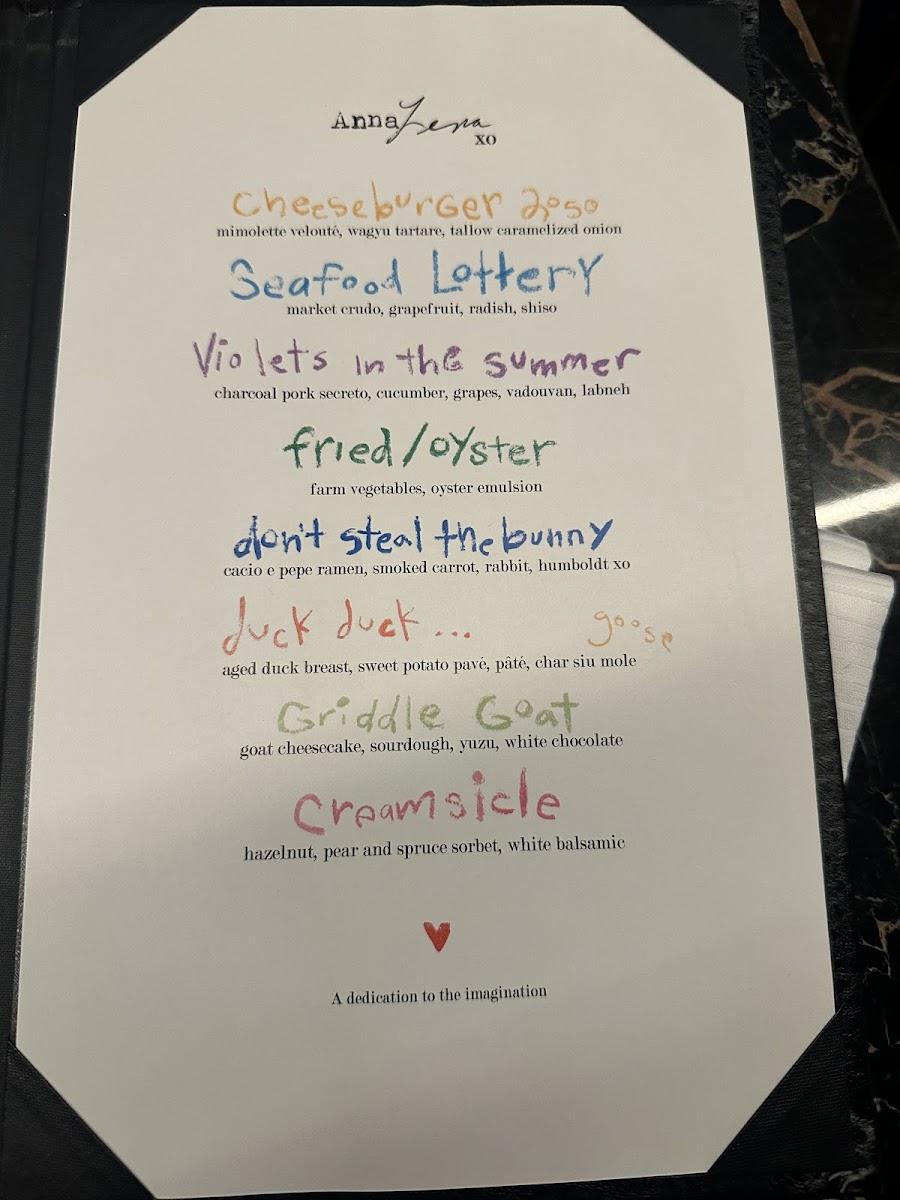 AnnaLena
xo
cheeseburger 2050
mimolette velouté, wagyu tartare, tallow caramelized onion
Seafood Lottery
market crudo, grapefruit, radish, shiso
Violets in the summer
charcoal pork secreto, cucumber, grapes, vadouvan, labneh
fried/oyster
farm vegetables, oyster emulsion
don't steal the bunny
cacio e pepe ramen, smoked carrot, rabbit, humboldt xo
duck duck... goose
aged duck breast, sweet potato pavé, pâté, char siu mole
Griddle Goat
goat cheesecake, sourdough, yuzu, white chocolate
creamsicle
hazelnut, pear and spruce sorbet, white balsamic
A dedication to the imagination